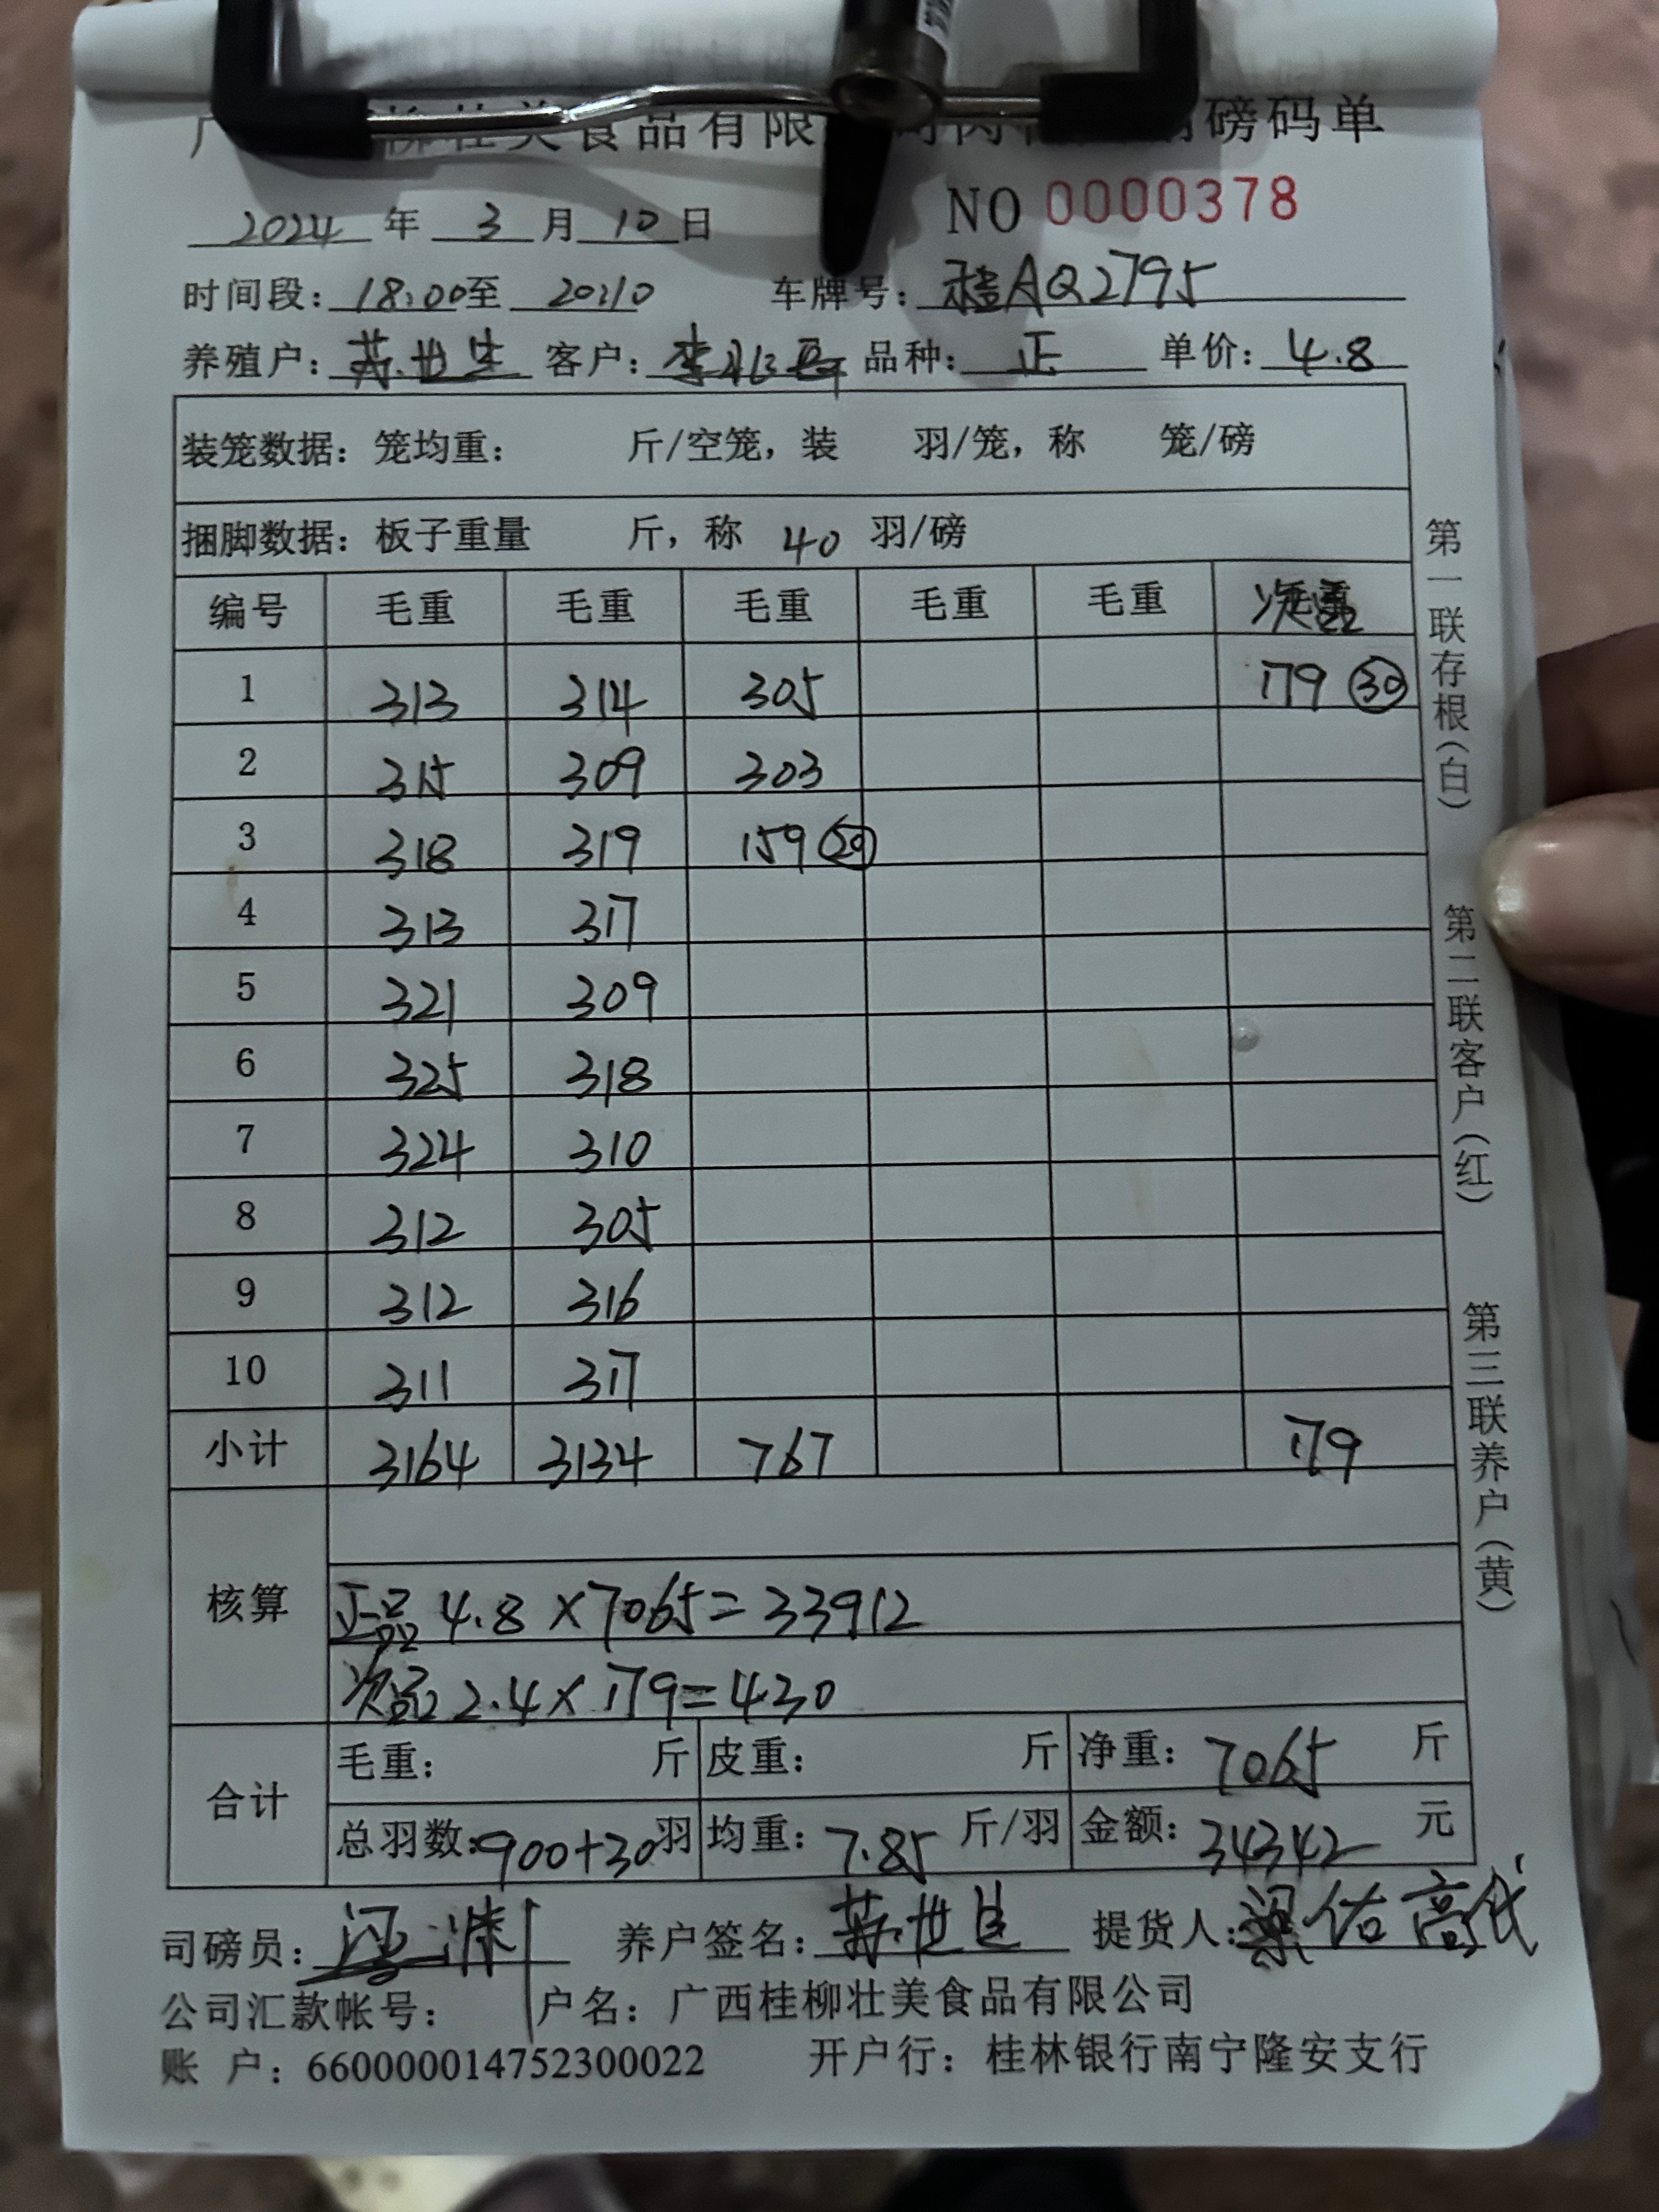 柳壮美食品有限 磅码单
2024 年 3 月 10 日 NO 0000378
时间段: 18:00 至 20:10 车牌号: 桂AQ2795
养殖户: 客户: 李 品种: 正 单价: 4.8
装笼数据: 笼均重: 斤/空笼, 装 羽/笼, 称 笼/磅
捆脚数据: 板子重量 斤, 称 40 羽/磅
编号 毛重 毛重 毛重 毛重 毛重 次品
1 313 314 305 179 ㉚
2 315 309 303
3 318 319 159 ⑳
4 313 317
5 321 309
6 325 318
7 324 310
8 312 305
9 312 316
10 311 317
小计 3164 3134 767 179
核算
正品 4.8×7065=33912
次品 2.4×179=430
合计
毛重: 斤 皮重: 斤 净重: 7065 斤
总羽数: 900+30 羽 均重: 7.85 斤/羽 金额: 34342 元
司磅员: 养户签名: 提货人: 梁佑高代
公司汇款帐号: 户名: 广西桂柳壮美食品有限公司
账 户: 660000014752300022 开户行: 桂林银行南宁隆安支行
第一联存根(白) 第二联客户(红) 第三联养户(黄)